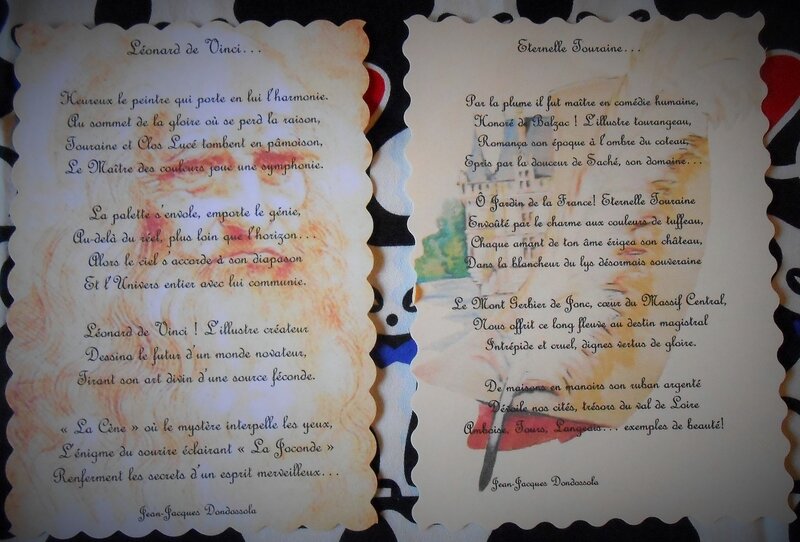 Léonard de Vinci...
Heureux le peintre qui porte en lui l'harmonie.
Au sommet de la gloire où se perd la raison,
Touraine et Clos Lucé tombent en pâmoison,
Le Maître des couleurs joue une symphonie.
La palette s'envole, emporte le génie,
Au-delà du réel, plus loin que l'horizon...
Alors le ciel s'accorde à son diapason
Et l'Univers entier avec lui communie.
Léonard de Vinci ! L'illustre créateur
Dessina le futur d'un monde novateur,
Tirant son art divin d'une source féconde.
« La Cène » où le mystère interpelle les yeux,
L'énigme du sourire éclairant « La Joconde »
Renferment les secrets d'un esprit merveilleux...
Jean-Jacques Dondossola
Eternelle Touraine...
Par la plume il fut maître en comédie humaine,
Honoré de Balzac ! L'illustre tourangeau,
Romança son époque à l'ombre du coteau,
Epris par la douceur de Saché, son domaine...
Ô Jardin de la France! Eternelle Touraine
Envoûté par le charme aux couleurs de tuffeau,
Chaque amant de ton âme érigea son château,
Dans la blancheur du lys désormais souveraine
Le Mont Gerbier de Jonc, cœur du Massif Central,
Nous offrit ce long fleuve au destin magistral
Intrépide et cruel, dignes vertus de gloire.
De maisons en manoirs son ruban argenté
Dévoile nos cités, trésors du val de Loire
Amboise, Tours, Langeais... exemples de beauté!
Jean-Jacques Dondossola